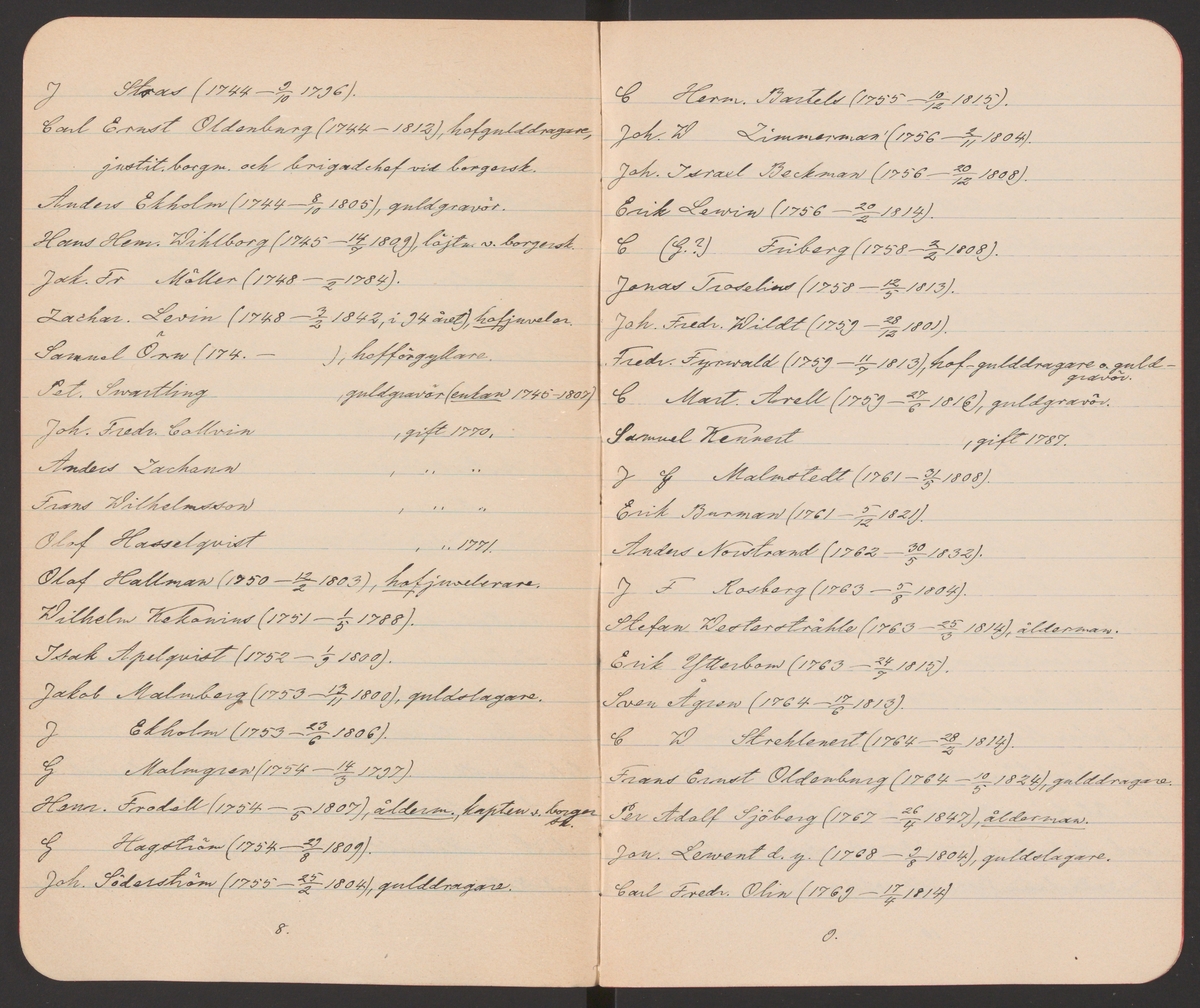 J Stras (1744 — 9/10 1796).
Carl Ernst Oldenburg (1744 — 1812), hofgulddragare,
justit.borgm. och brigadchef vid borgersk.
Anders Ekholm (1744 — 8/10 1805), guldgravör.
Hans Hem. Wihlborg (1745 — 14/7 1809), löjtn. v. borgersk.
Joh. Fr Möller (1748 — /2 1784).
Zachar. Levin (1748 — 3/2 1842, i 94 året), hofjuveler.
Samuel Örn (174. — ), hofförgyllare.
Pet. Swartling , guldgravör (enkan 1745-1807)
Joh. Fredr. Collvin , gift 1770.
Anders Zachaun , " "
Frans Wilhelmsson , " "
Olof Hasselqvist , " 1771.
Olof Hallman (1750 — 12/2 1803), hofjuvelerare.
Wilhelm Kekonius (1751 — 1/5 1788).
Isak Apelqvist (1752 — 1/9 1800).
Jakob Malmberg (1753 — 13/11 1800), guldslagare.
J Ekholm (1753 — 23/6 1806).
G Malmgren (1754 — 14/3 1797).
Henr. Frodell (1754 — /5 1807), ålderm., kapten v. borger
sk.
G Hagström (1754 — 27/8 1809).
Joh. Söderström (1755 — 25/2 1804), gulddragare.
8.
C Herm. Bartels (1755 — 10/12 1815).
Joh. W Zimmerman (1756 — 3/11 1804).
Joh. Israel Beckman (1756 — 20/12 1808).
Erik Lewin (1756 — 20/2 1814).
C (G.?) Friberg (1758 — 2/2 1808).
Jonas Troselius (1758 — 12/5 1813).
Joh. Fredr. Wildt (1759 — 28/12 1801).
Fredr. Fyrwald (1759 — 11/7 1813), hof-gulddragare o. guld-
gravör.
C Mart. Arell (1759 — 27/6 1816), guldgravör.
Samuel Kennert , gift 1787.
J G Malmstedt (1761 — 31/5 1808).
Erik Burman (1761 — 5/12 1821).
Anders Norstrand (1762 — 30/5 1832).
J F Rosberg (1763 — 5/8 1804).
Stefan Westerstråhle (1763 — 25/3 1814), ålderman.
Erik Ytterbom (1763 — 24/7 1815).
Sven Ågren (1764 — 17/6 1813).
C W Strehlenert (1764 — 28/2 1814).
Frans Ernst Oldenburg (1764 — 10/5 1824), gulddragare.
Per Adolf Sjöberg (1767 — 26/4 1847), ålderman.
Jon. Lewent d. y. (1768 — 9/6 1804), guldslagare.
Carl Fredr. Olin (1769 — 17/4 1814)
9.